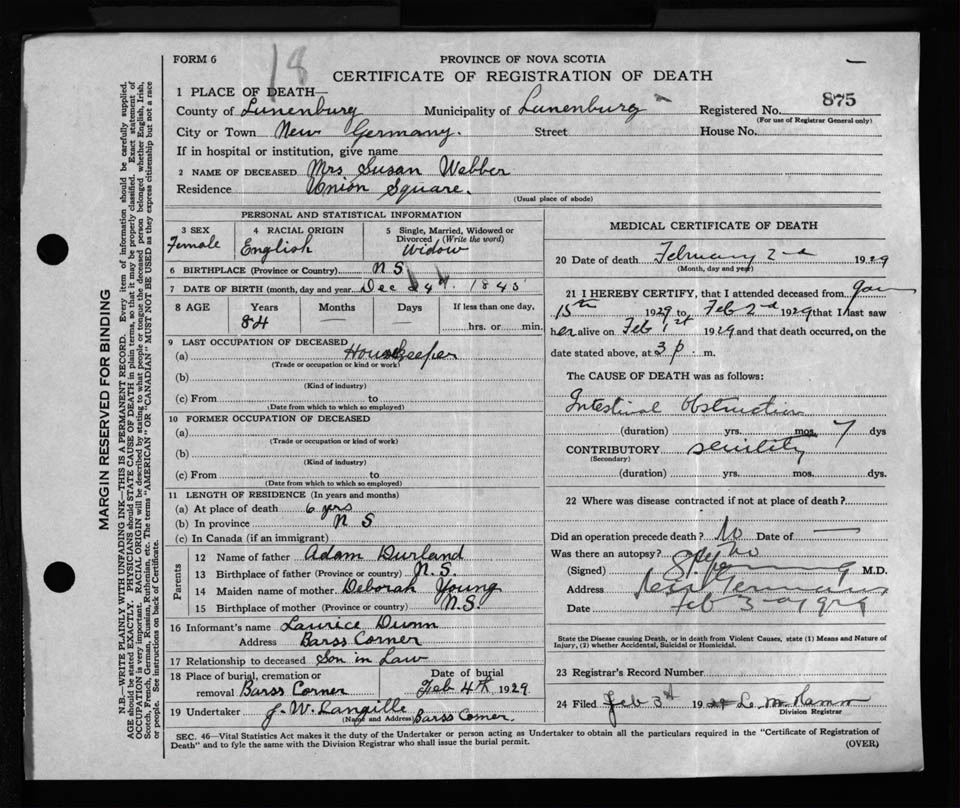 18
FORM 6
PROVINCE OF NOVA SCOTIA
CERTIFICATE OF REGISTRATION OF DEATH
1 PLACE OF DEATH—
County of Lunenburg Municipality of Lunenburg Registered No. 875
(For use of Registrar General only)
City or Town New Germany. Street House No.
If in hospital or institution, give name
2 NAME OF DECEASED Mrs Susan Webber
Residence Union Square.
(Usual place of abode)
PERSONAL AND STATISTICAL INFORMATION
3 SEX Female
4 RACIAL ORIGIN English
5 Single, Married, Widowed or Divorced (Write the word) Widow
6 BIRTHPLACE (Province or Country) N S
7 DATE OF BIRTH (month, day and year) Dec 24th 1845
8 AGE Years 84 Months — Days — If less than one day, hrs. or min.
9 LAST OCCUPATION OF DECEASED
(a) Housekeeper
(Trade or occupation or kind or work)
(b)
(Kind of industry)
(c) From to
(Date from which to which so employed)
10 FORMER OCCUPATION OF DECEASED
(a)
(Trade or occupation or kind of work)
(b)
(Kind of industry)
(c) From to
(Date from which to which so employed)
11 LENGTH OF RESIDENCE (In years and months)
(a) At place of death 6 yrs
(b) In province N S
(c) In Canada (if an immigrant)
Parents
12 Name of father Adam Durland
13 Birthplace of father (Province or country) N.S.
14 Maiden name of mother Deborah Young
15 Birthplace of mother (Province or country) N.S.
16 Informant's name Laurice Dunn
Address Barss Corner
17 Relationship to deceased Son in Law
18 Place of burial, cremation or removal Barss Corner
Date of burial Feb 4th 1929.
19 Undertaker J. W. Langille
(Name and Address) Barss Corner.
MEDICAL CERTIFICATE OF DEATH
20 Date of death February 2nd 1929
(Month, day and year)
21 I HEREBY CERTIFY, that I attended deceased from Jan
15th 1929 to Feb 2nd 1929 that I last saw
her alive on Feb 1st 1929 and that death occurred, on the
date stated above, at 3 p. m.
The CAUSE OF DEATH was as follows:
Intestinal Obstruction
(duration) yrs. mos. 7 dys
CONTRIBUTORY senility
(Secondary)
(duration) yrs. mos. dys.
22 Where was disease contracted if not at place of death?
Did an operation precede death? No Date of —
Was there an autopsy? No
(Signed) M.D.
Address New Germany
Date Feb 3rd 1929
State the Disease causing Death, or in death from Violent Causes, state (1) Means and Nature of
Injury, (2) whether Accidental, Suicidal or Homicidal.
23 Registrar's Record Number
24 Filed Feb 3rd 19
Division Registrar
SEC. 46—Vital Statistics Act makes it duty of the Undertaker or person acting as Undertaker to obtain all the particulars required in the "Certificate of Registration of
Death" and to fyle the same with the Division Registrar who shall issue the burial permit. (OVER)
MARGIN RESERVED FOR BINDING
N.B.—WRITE PLAINLY WITH UNFADING INK—THIS IS A PERMANENT RECORD. Every item of information should be carefully supplied.
AGE should be stated EXACTLY. PHYSICIANS should STATE CAUSE OF DEATH in plain terms, so that it may be properly classified. Exact statement of
OCCUPATION is very important. RACIAL ORIGIN will be described by stating to what people or tongue the deceased person belonged whether English, Irish,
Scotch, French, German, Russian, Ruthenian, etc. The terms "AMERICAN" OR "CANADIAN" MUST NOT BE USED as they express citizenship but not a race
or people. See instructions on back of Certificate.